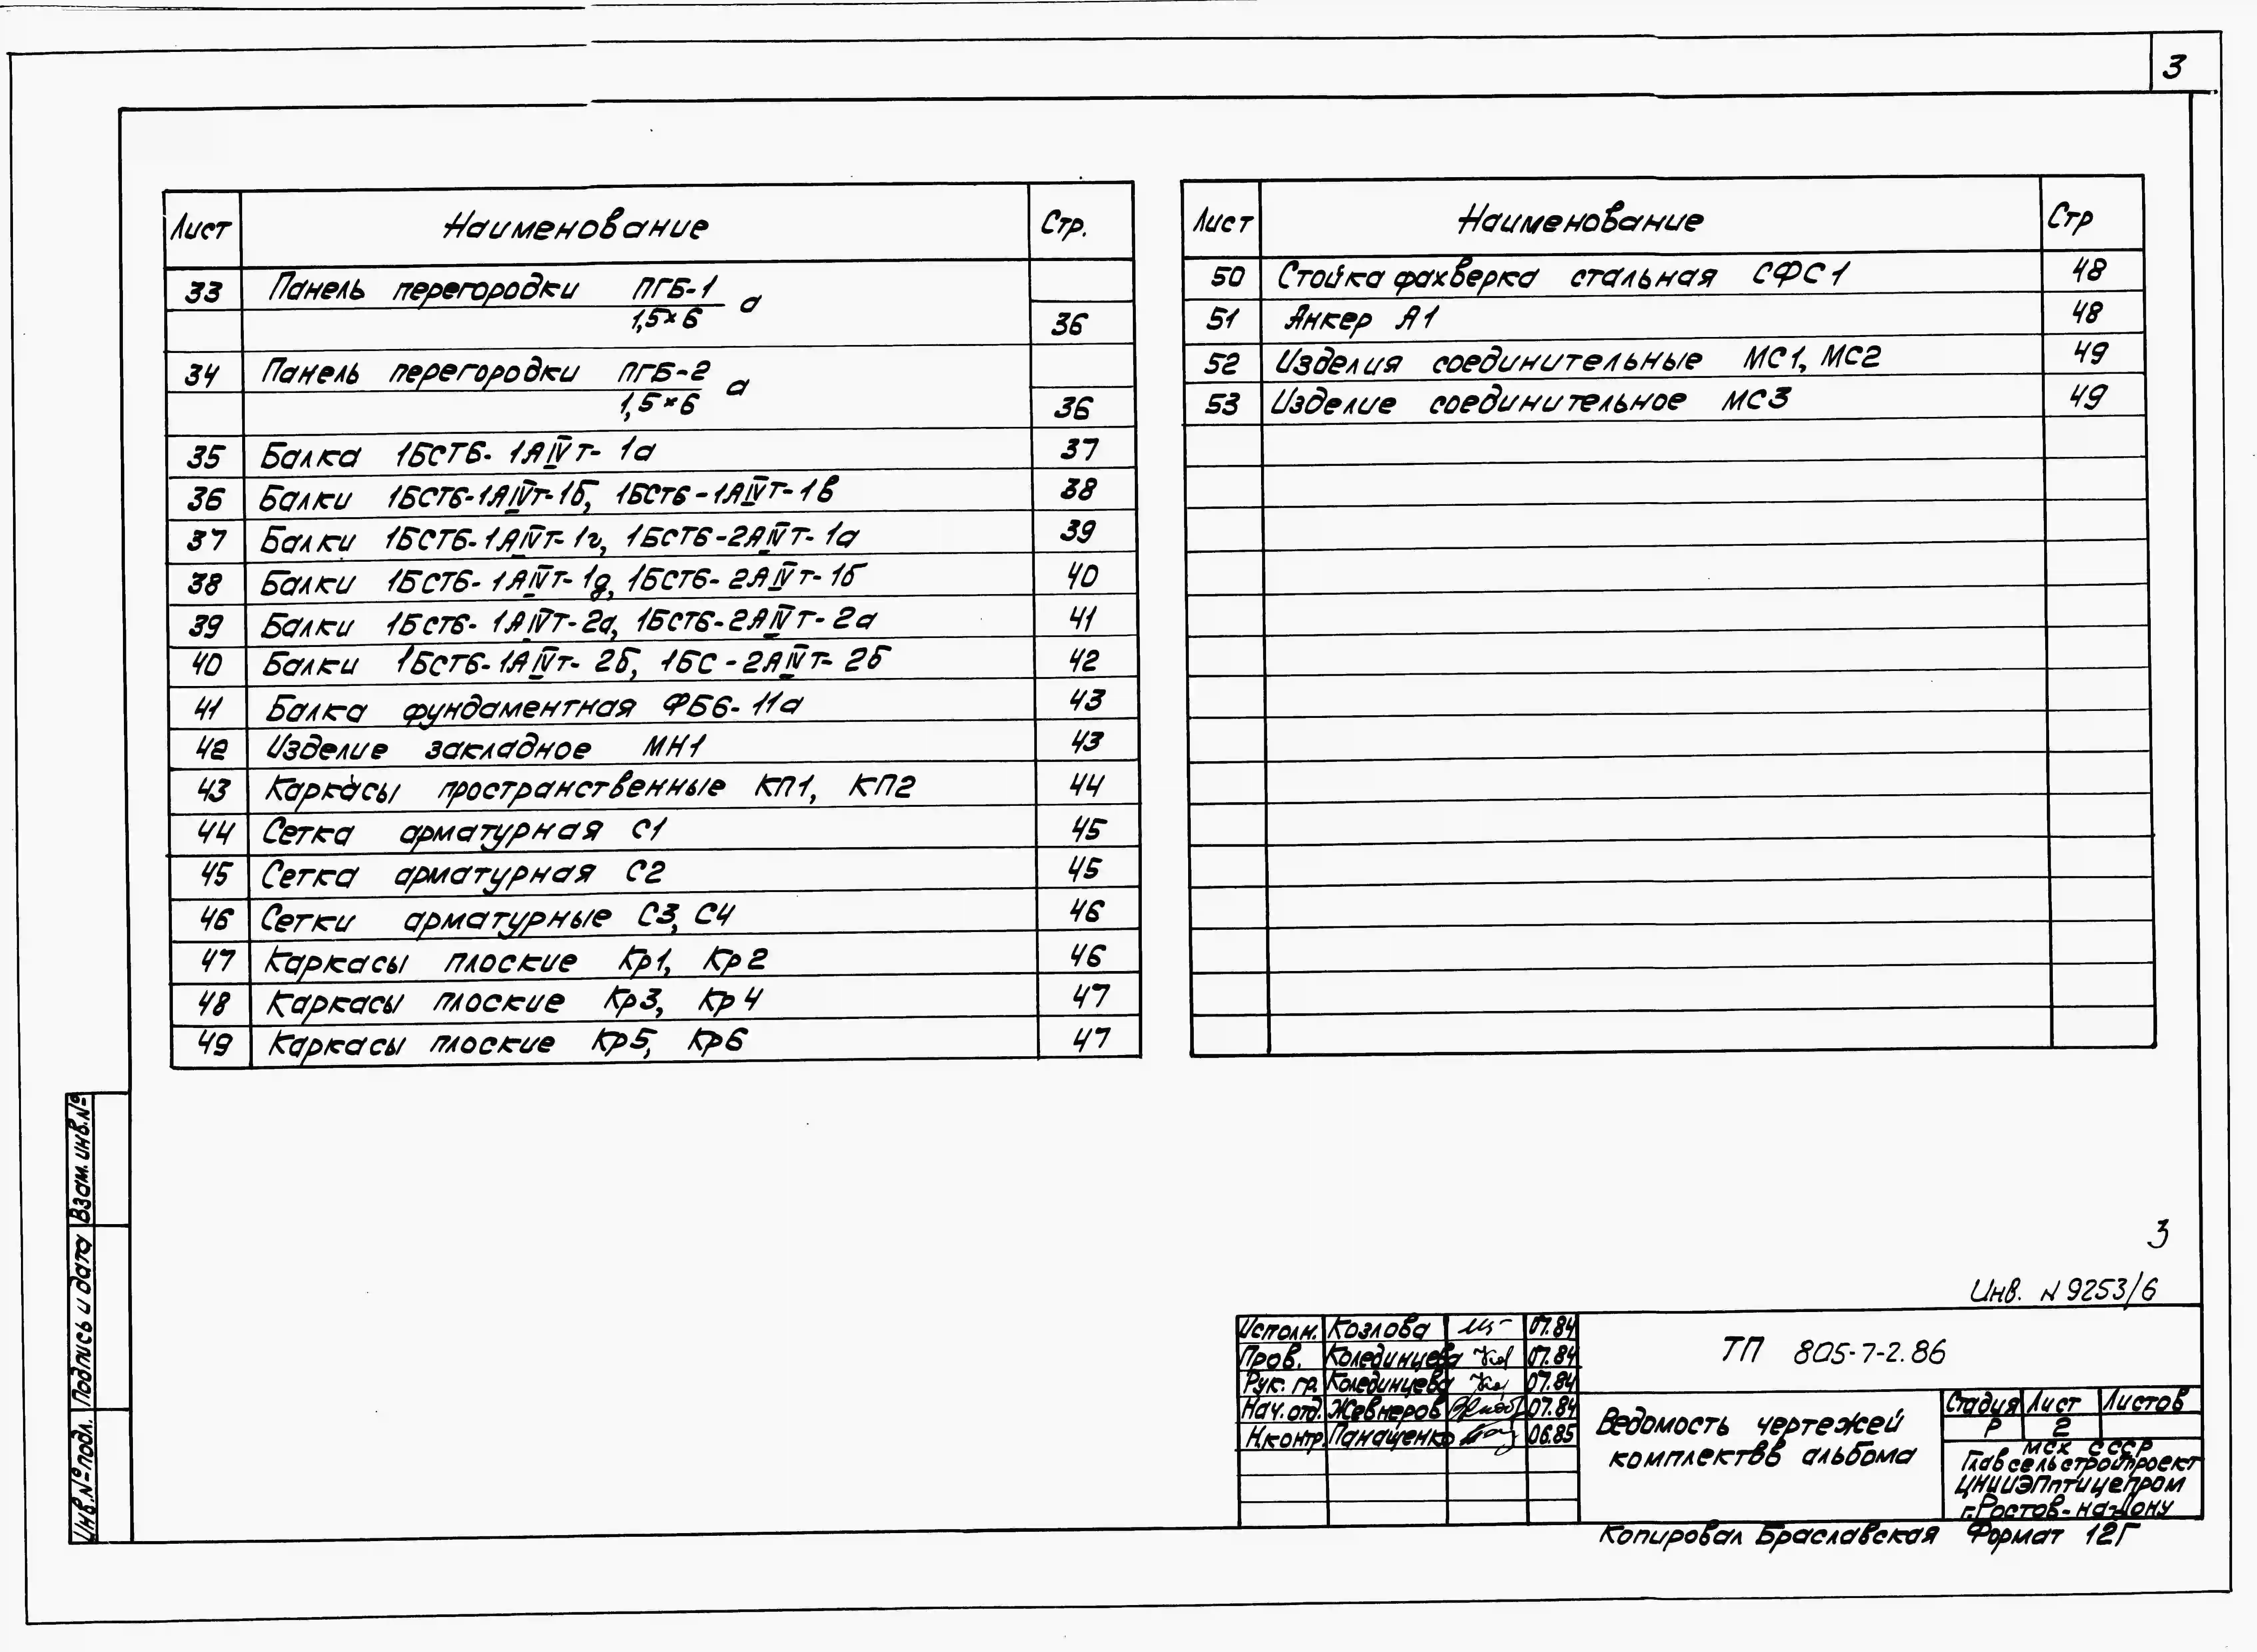 3
Лист Наименование Стр.
33 Панель перегородки ПГБ-1 а
1,5×6 36
34 Панель перегородки ПГБ-2 а
1,5×6 36
35 Балка 1БСТ6-1АIVт-1а 37
36 Балки 1БСТ6-1АIVт-1б, 1БСТ6-1АIVт-1в 38
37 Балки 1БСТ6-1АIVт-1г, 1БСТ6-2АIVт-1а 39
38 Балки 1БСТ6-1АIVт-1д, 1БСТ6-2АIVт-1б 40
39 Балки 1БСТ6-1АIVт-2а, 1БСТ6-2АIVт-2а 41
40 Балки 1БСТ6-1АIVт-2б, 1БС-2АIVт-2б 42
41 Балка фундаментная ФБ6-11а 43
42 Изделие закладное МН1 43
43 Каркасы пространственные КП1, КП2 44
44 Сетка арматурная С1 45
45 Сетка арматурная С2 45
46 Сетки арматурные С3, С4 46
47 Каркасы плоские Кр1, Кр2 46
48 Каркасы плоские Кр3, Кр4 47
49 Каркасы плоские Кр5, Кр6 47
Лист Наименование Стр
50 Стойка фахверка стальная СФС1 48
51 Анкер А1 48
52 Изделия соединительные МС1, МС2 49
53 Изделие соединительное МС3 49
Взам. инв.№
Подпись и дата
Инв.№ подл.
3
Инв. N 9253/6
Исполн. Козлова 07.84
Пров. Колединцева 07.84
Рук. гр. Колединцева 07.84
Нач. отд. Жевнеров 07.84
Н.контр. Панащенко 06.85
ТП 805-7-2.86
Ведомость чертежей
комплектвв альбома
Стадия Лист Листов
Р 2
МСХ СССР
Главсельстройпроект
ЦНИИЭПптицепром
г.Ростов-на-Дону
Копировал Браславская Формат 12Г